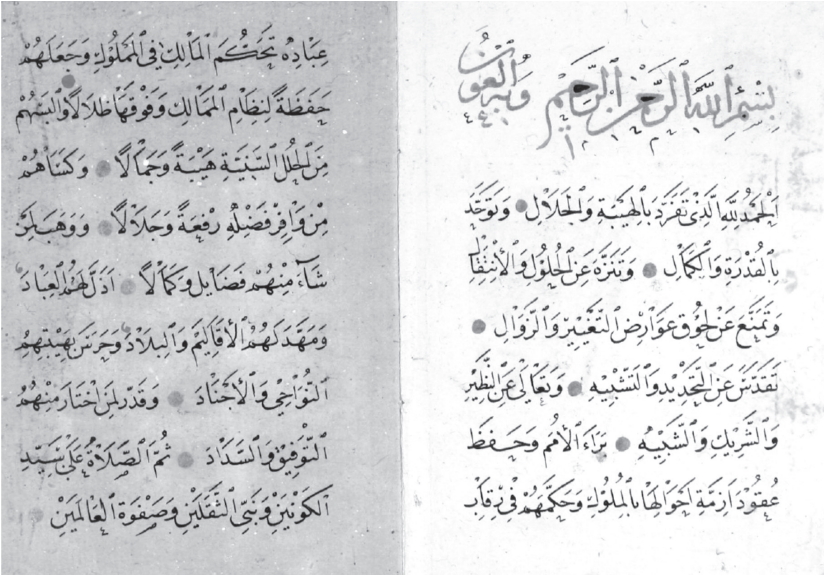 بِسْمِ اللَّهِ الرَّحْمٰنِ الرَّحِيمِ وَبِهِ الْعَوْنُ
الْحَمْدُ لِلَّهِ الَّذِي تَفَرَّدَ بِالْهَيْبَةِ وَالْجَلَالِ وَتَوَحَّدَ
بِالْقُدْرَةِ وَالْكَمَالِ وَتَنَزَّهَ عَنِ الْحُلُولِ وَالْاِنْتِقَالِ
وَتَمَنَّعَ عَنْ لُحُوقِ عَوَارِضِ التَّغْيِيرِ وَالزَّوَالِ
تَقَدَّسَ عَنِ التَّحْدِيدِ وَالتَّشْبِيهِ وَتَعَالَى عَنِ النَّظِيرِ
وَالشَّرِيكِ وَالشَّبِيهِ بَرَاءَ الْأُمَمَ وَحَفِظَ
عُقُودَ اَزِمَّةِ اَحْوَالِهَا بِالْمُلُوكِ وَحَكَّمَهُمْ فِي رِقَابِ
عِبَادِهِ تَحَكُّمَ الْمَالِكِ فِي الْمَمْلُوكِ وَجَعَلَهُمْ
حَفَظَةً لِنِظَامِ الْمَمَالِكِ وَفَوْقَهَا ظِلَالًا وَاَلْبَسَهُمْ
مِنَ الْحُلَلِ السَّنِيَّةِ هَيْبَةً وَجَمَالًا وَكَسَاهُمْ
مِنْ وَافِرِ فَضْلِهِ رِفْعَةً وَجَلَالًا وَوَهَبَ لِمَنْ
شَاءَ مِنْهُمْ فَضَايِلَ وَكَمَالًا اَذَلَّ لَهُمُ الْعِبَادَ
وَمَهَّدَ لَهُمُ الْأَقَالِيمَ وَالْبِلَادَ وَحَرَسَ بِهَيْبَتِهِمُ
النَّوَاحِي وَالْأَجْنَادَ وَقَدَّرَ لِمَنِ اخْتَارَ مِنْهُمُ
التَّوْفِيقَ وَالسَّدَادَ ثُمَّ الصَّلَاةُ عَلَى سَيِّدِ
الْكَوْنَيْنِ وَنَبِيِّ الثَّقَلَيْنِ وَصَفْوَةِ الْعَالَمِينَ